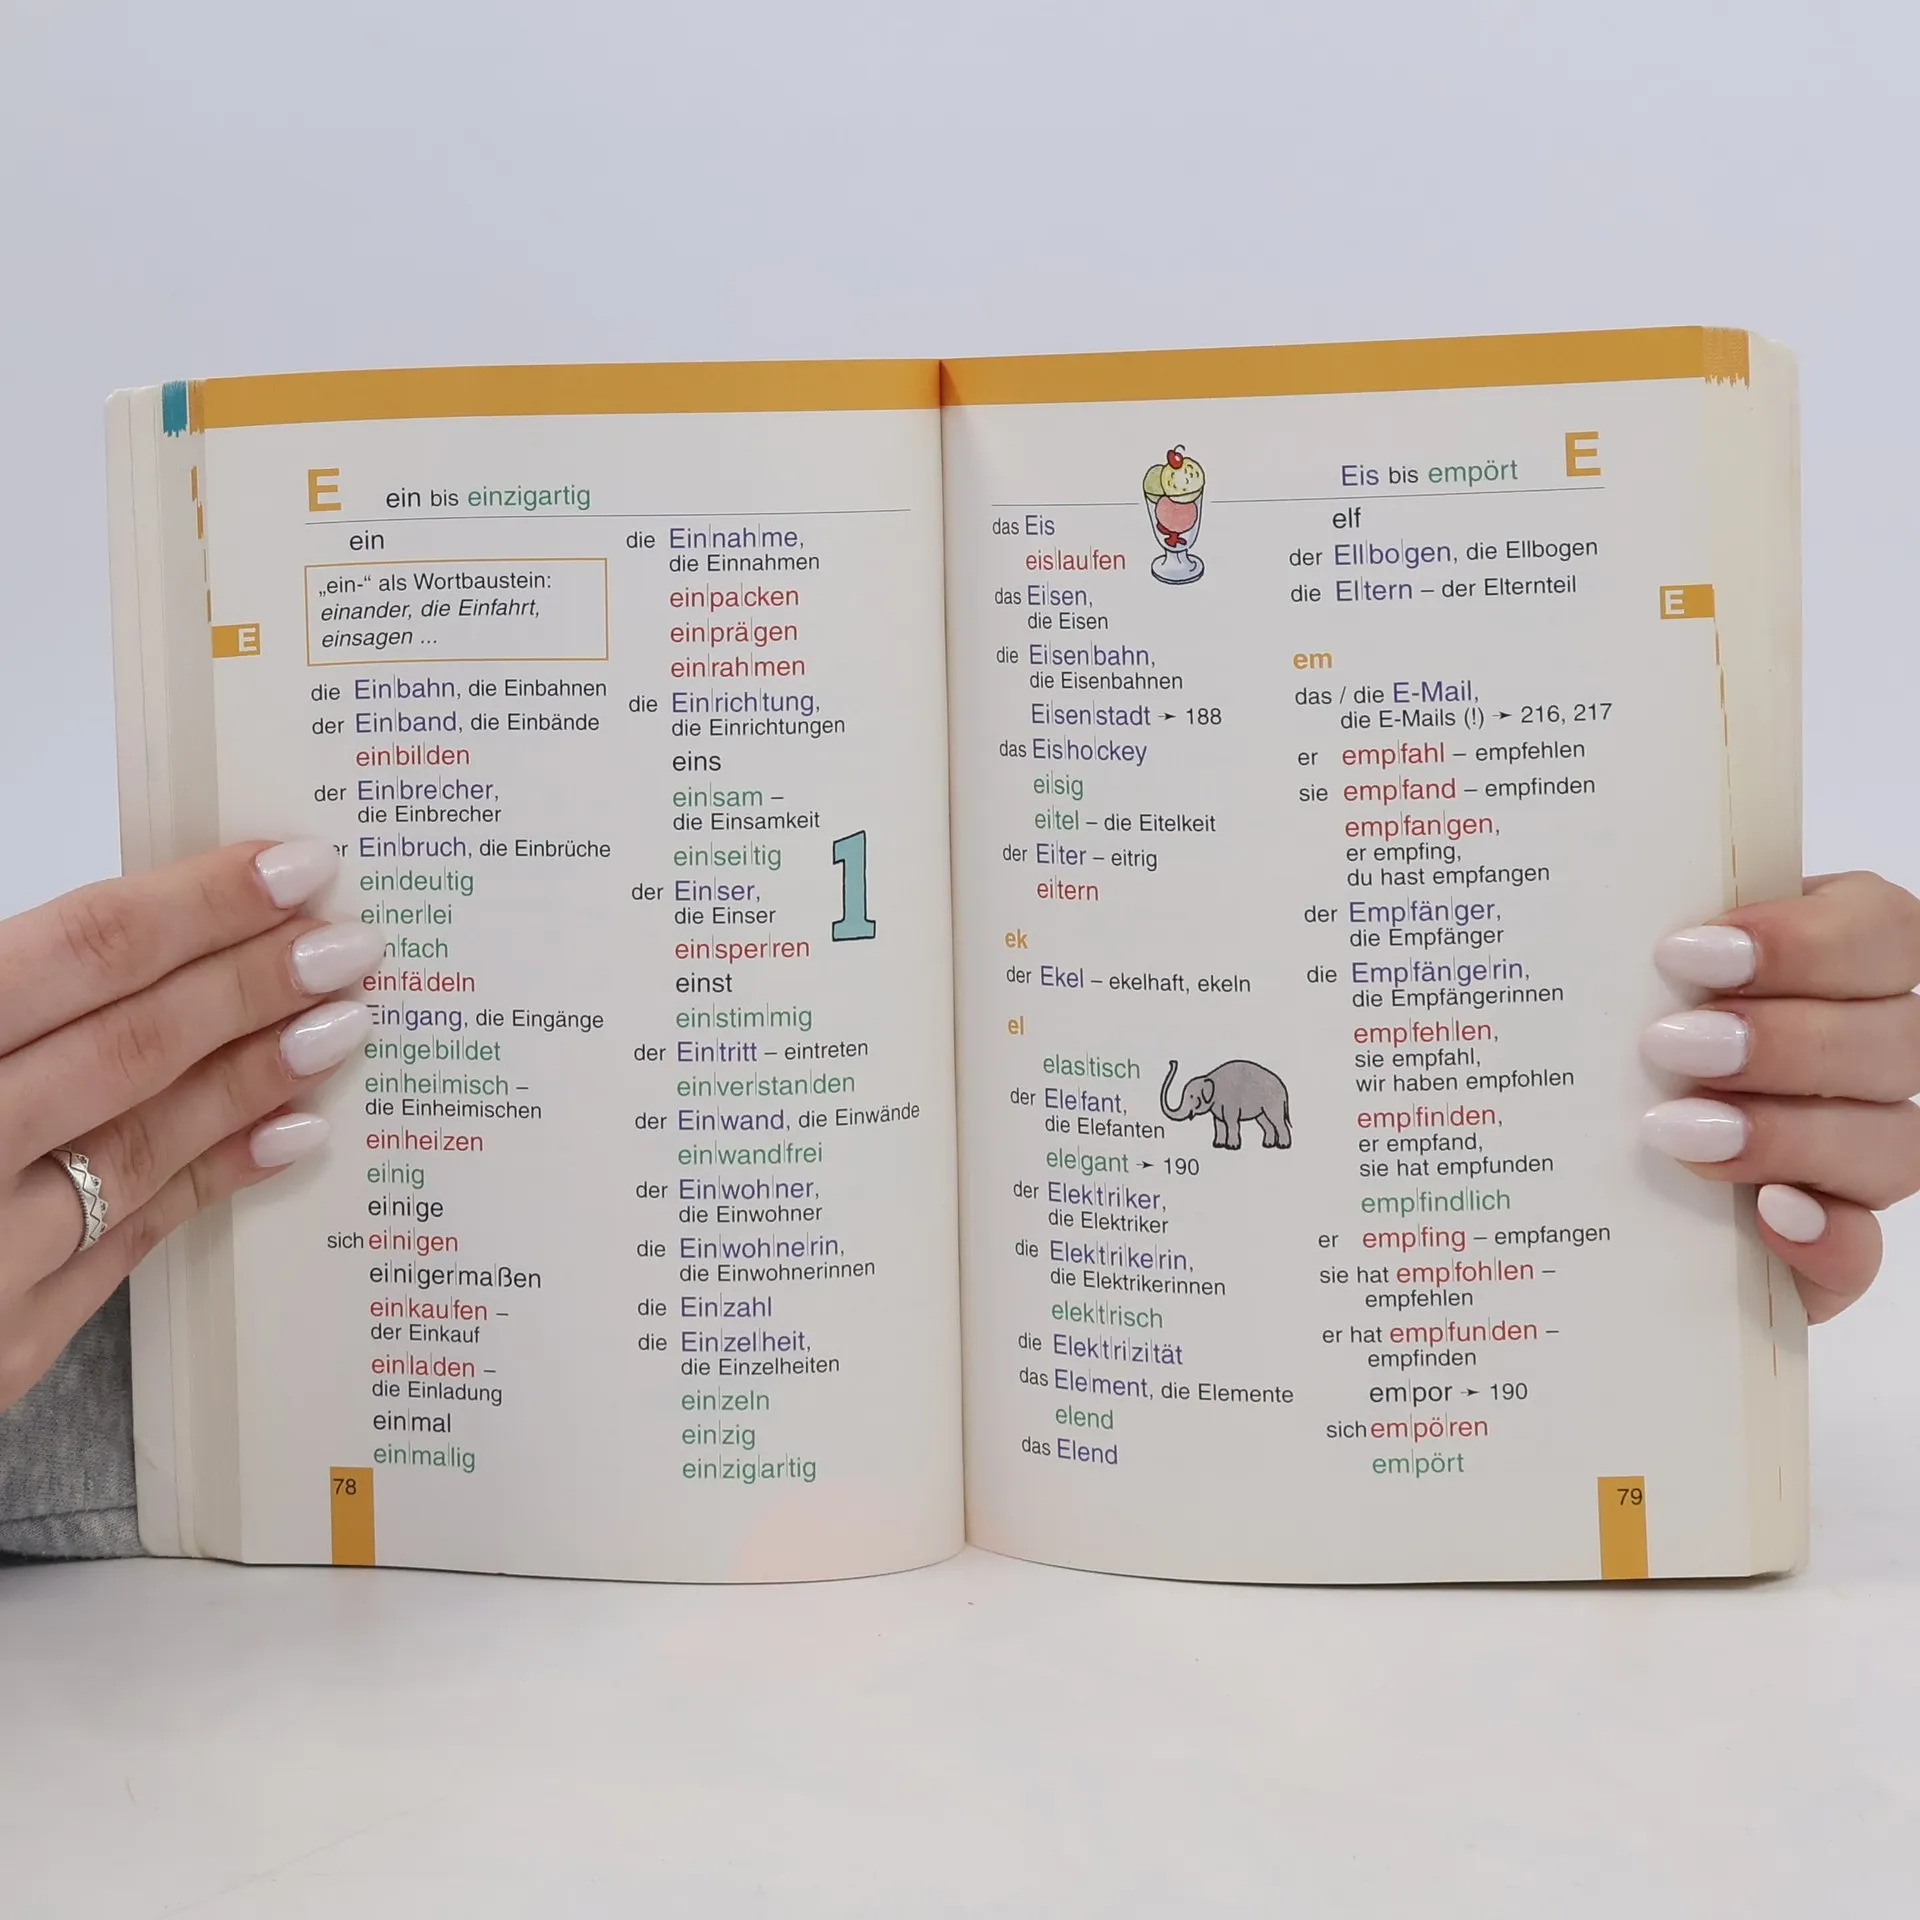 E ein bis einzigartig
ein
„ein-“ als Wortbaustein:
einander, die Einfahrt,
einsagen ...
E
die Ein|bahn, die Einbahnen
der Ein|band, die Einbände
ein|bil|den
der Ein|bre|cher,
die Einbrecher
Ein|bruch, die Einbrüche
ein|deu|tig
ei|ner|lei
ein|fä|deln
die Eingänge
ein|ge|bil|det
ein|hei|misch –
die Einheimischen
ein|hei|zen
ei|nig
ei|ni|ge
sich ei|ni|gen
ei|ni|ger|ma|ßen
ein|kau|fen –
der Einkauf
ein|la|den –
die Einladung
ein|mal
ein|ma|lig
78
die Ein|nah|me,
die Einnahmen
ein|pa|cken
ein|prä|gen
ein|rah|men
die Ein|rich|tung,
die Einrichtungen
eins
ein|sam –
die Einsamkeit
ein|sei|tig
1
der Ein|ser,
die Einser
ein|sper|ren
einst
ein|stim|mig
der Ein|tritt – eintreten
ein|ver|stan|den
der Ein|wand, die Einwände
ein|wand|frei
der Ein|woh|ner,
die Einwohner
die Ein|woh|ne|rin,
die Einwohnerinnen
die Ein|zahl
die Ein|zel|heit,
die Einzelheiten
ein|zeln
ein|zig
ein|zig|ar|tig
Eis bis empört E
das Eis
eis|lau|fen
das Ei|sen,
die Eisen
die Ei|sen|bahn,
die Eisenbahnen
Ei|sen|stadt ➛ 188
das Eis|ho|ckey
ei|sig
ei|tel – die Eitelkeit
der Ei|ter – eitrig
ei|tern
ek
der Ekel – ekelhaft, ekeln
el
elas|tisch
der Ele|fant,
die Elefanten
ele|gant ➛ 190
der Elek|t|ri|ker,
die Elektriker
die Elek|t|ri|ke|rin,
die Elektrikerinnen
elek|t|risch
die Elek|t|ri|zi|tät
das Ele|ment, die Elemente
elend
das Elend
elf
der Ell|bo|gen, die Ellbogen
die El|tern – der Elternteil
E
em
das / die E-Mail,
die E-Mails (!) ➛ 216, 217
er emp|fahl – empfehlen
sie emp|fand – empfinden
emp|fan|gen,
er empfing,
du hast empfangen
der Emp|fän|ger,
die Empfänger
die Emp|fän|ge|rin,
die Empfängerinnen
emp|feh|len,
sie empfahl,
wir haben empfohlen
emp|fin|den,
er empfand,
sie hat empfunden
emp|find|lich
er emp|fing – empfangen
sie hat emp|foh|len –
empfehlen
er hat emp|fun|den –
empfinden
em|por ➛ 190
sich em|pö|ren
em|pört
79